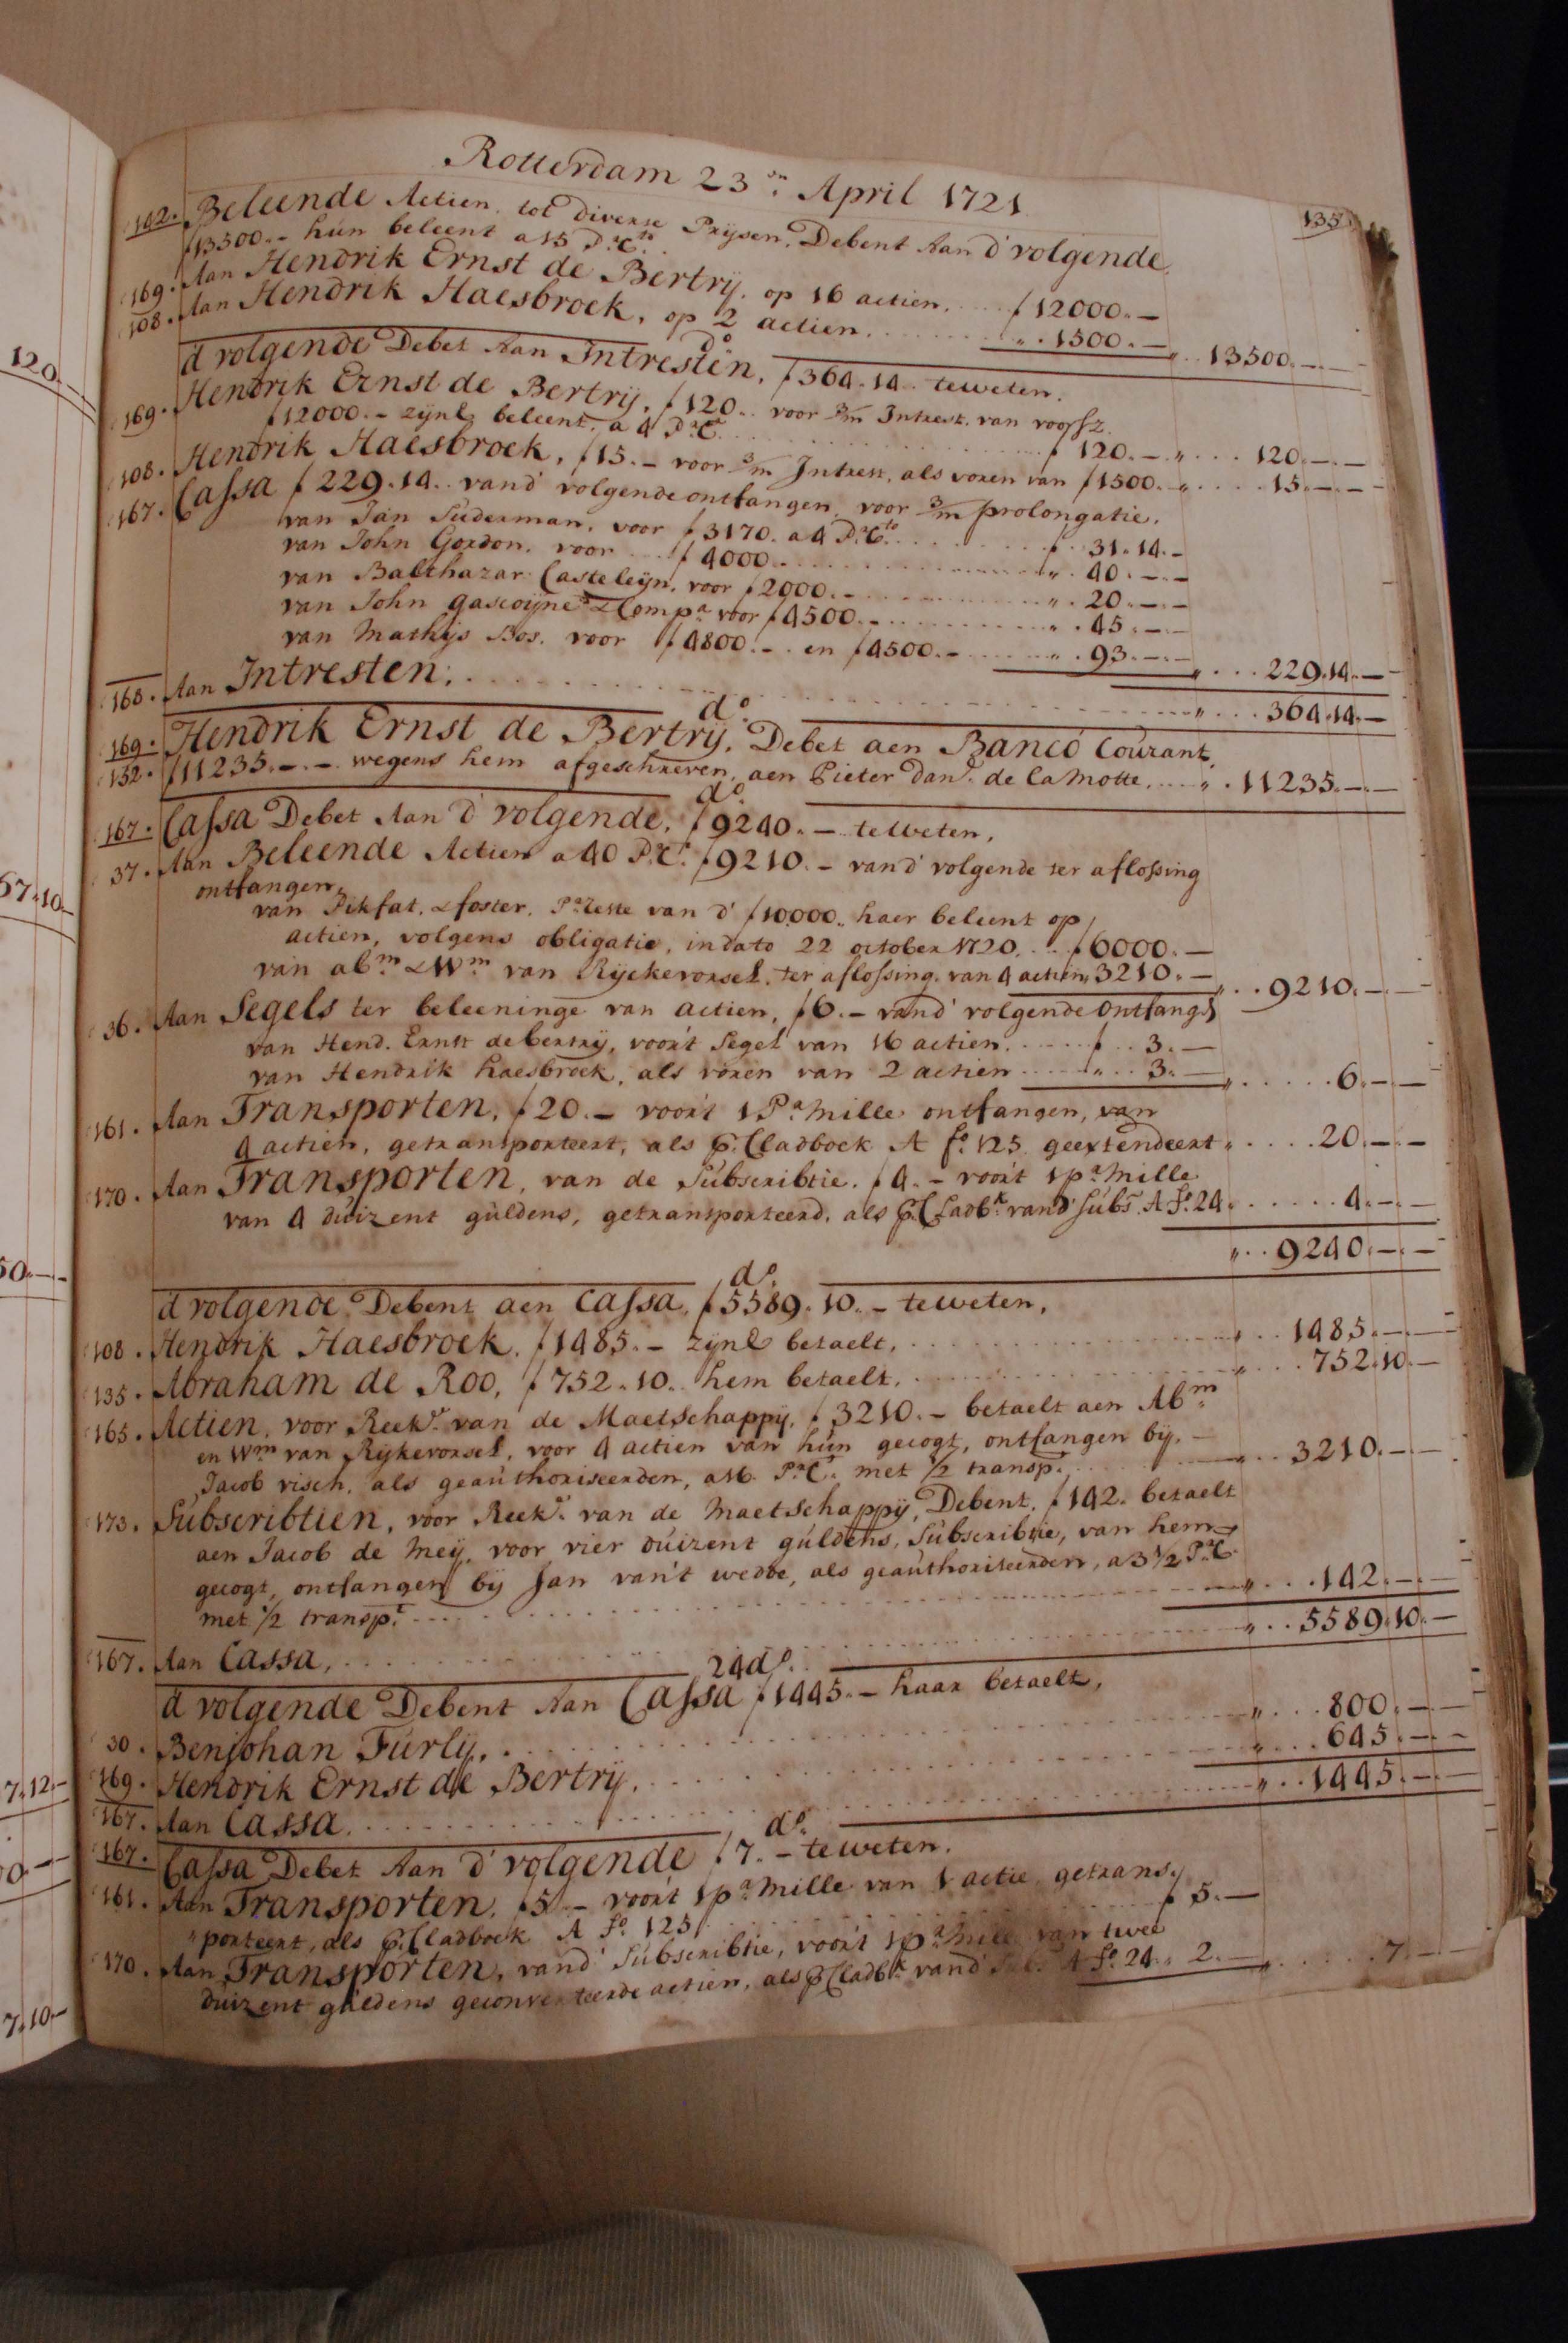 Rotterdam 23en April 1721
135
142. Beleende Actien, tot diverse Prijsen, Debent Aan d'volgende,
f13500.- hun beleent a 15 P.r C.to
169. Aan Hendrik Ernst de Bertrÿ, op 16 actien, f 12000.-
108. Aan Hendrik Haesbroek, op 2 actien " 1500.- " 13500.-
do.
d'volgende Debet Aan Intresten, f 364.14. teweten.
169. Hendrik Ernst de Bertrÿ, f 120.. voor 3/m Intrest, van voorsz.
f 12000.- zijnE beleent, a 4 P.r C.to f 120.- " 120.-.-
108. Hendrik Haesbroek, f 15.- voor 3/m Intrest, als voren van f 1500.- " 15.-.-
167. Cassa f 229.14.. vand' volgende ontfangen, voor 3/m prolongatie.
van Jan Suderman, voor f 3170. a 4 P.r C.to f 31.14.-
van John Gordon, voor f 4000.- " 40.-.-
van Balthazar Casteleÿn, voor f 2000.- " 20.-.-
van John Gascoÿne & Comp.a voor f 4500.- " 45.-.-
van Mathÿs Bos, voor f 4800.- en f 4500.- " 93.-.- " 229.14.-
168. Aan Intresten, " 364.14.-
do.
169. Hendrik Ernst de Bertrÿ, Debet aen Banco Courant,
132. f 11235.-.- wegens hem afgeschreven, aen Pieter Dan.l de la Motte, " 11235.-.-
do.
167. Cassa Debet Aan d'volgende, f 9240.- teweten,
37. Aan Beleende Actien a 40 P.r C.to f 9210.- vand' volgende ter aflossing
ontfangen,
van Pikfat, & foster, P.r Reste van d' f 10000.. haer beleent op
actien, volgens obligatie, in dato 22 october 1720. f 6000.-
van ab.m & W.m van Rÿckevorsel, ter aflossing van 4 actien, 3210.- " 9210.-.-
36. Aan Segels ter beleeninge van actien, f 6.- vand' volgende OntfangE
van Hend. Ernst de bertrÿ, voor't Segel van 16 actien. f 3.-
van Hendrik haesbroek, als voren van 2 actien " 3.- " 6.-.-
161. Aan Transporten, f 20.- voor't 1 P.r Mille ontfangen, van
4 actien, getransporteert, als P. Cladboek A fo. 125 geextendeert " 20.-.-
170. Aan Transporten, van de Subscribtie. f 4.- voor't 1 p.r Mille
van 4 duizent guldens, getransporteerd, als P. Cladb.k vand' Subs. A fo. 24. 4.-.-
" 9240.-.-
do.
d'volgende Debent aen Cassa, f 5589.10.- teweten,
108. Hendrik Haesbroek, f 1485.- zijnE betaelt, " 1485.-.-
135. Abraham de Roo, f 752.10.. hem betaelt, " 752.10.-
165. Actien, voor Reek.g van de Maetschappÿ, f 3210.- betaelt aen Ab.m
en W.m van Rÿkevorsel, voor 4 actien van hun gecogt, ontfangen bÿ,
Jacob visch, als geauthoriseerden, a 16 P.r C.to met 1/2 transp.t " 3210.-.-
173. Subscribtien, voor Reek.g van de Maetschappÿ, Debent, f 142. betaelt
aen Jacob de Meÿ, voor vier duizent guldens, Subscribtie, van hem
gecogt, ontfangen bÿ Jan van't wedde, als geauthoriseerden, a 3 1/2 P.r C.to
met 1/2 transp.t " 142.-.-
167. Aan Cassa, " 5589.10.-
24 do.
d'volgende Debent Aan Cassa f 1445.- haar betaelt,
30. Benjohan Furlÿ, " 800.-.-
169. Hendrik Ernst de Bertrÿ, " 645.-.-
167. Aan Cassa " 1445.-.-
do.
167. Cassa Debet Aan d'volgende f 7.- teweten.
161. Aan Transporten, f 5.- voor't 1 p.r Mille van 1 actie getrans-
porteert, als P. Cladboek A fo. 125 f 5.-
170. Aan Transporten, vand' Subscribtie, voor't 1 p.r Mille van twee
duizent guldens geconverteerde actien, als P. Cladb.k vand' Subs. A fo. 24. " 2.- " 7.-.-
120.-
67.10-
50.-.-
7.12.-
0.-.-
7.10-